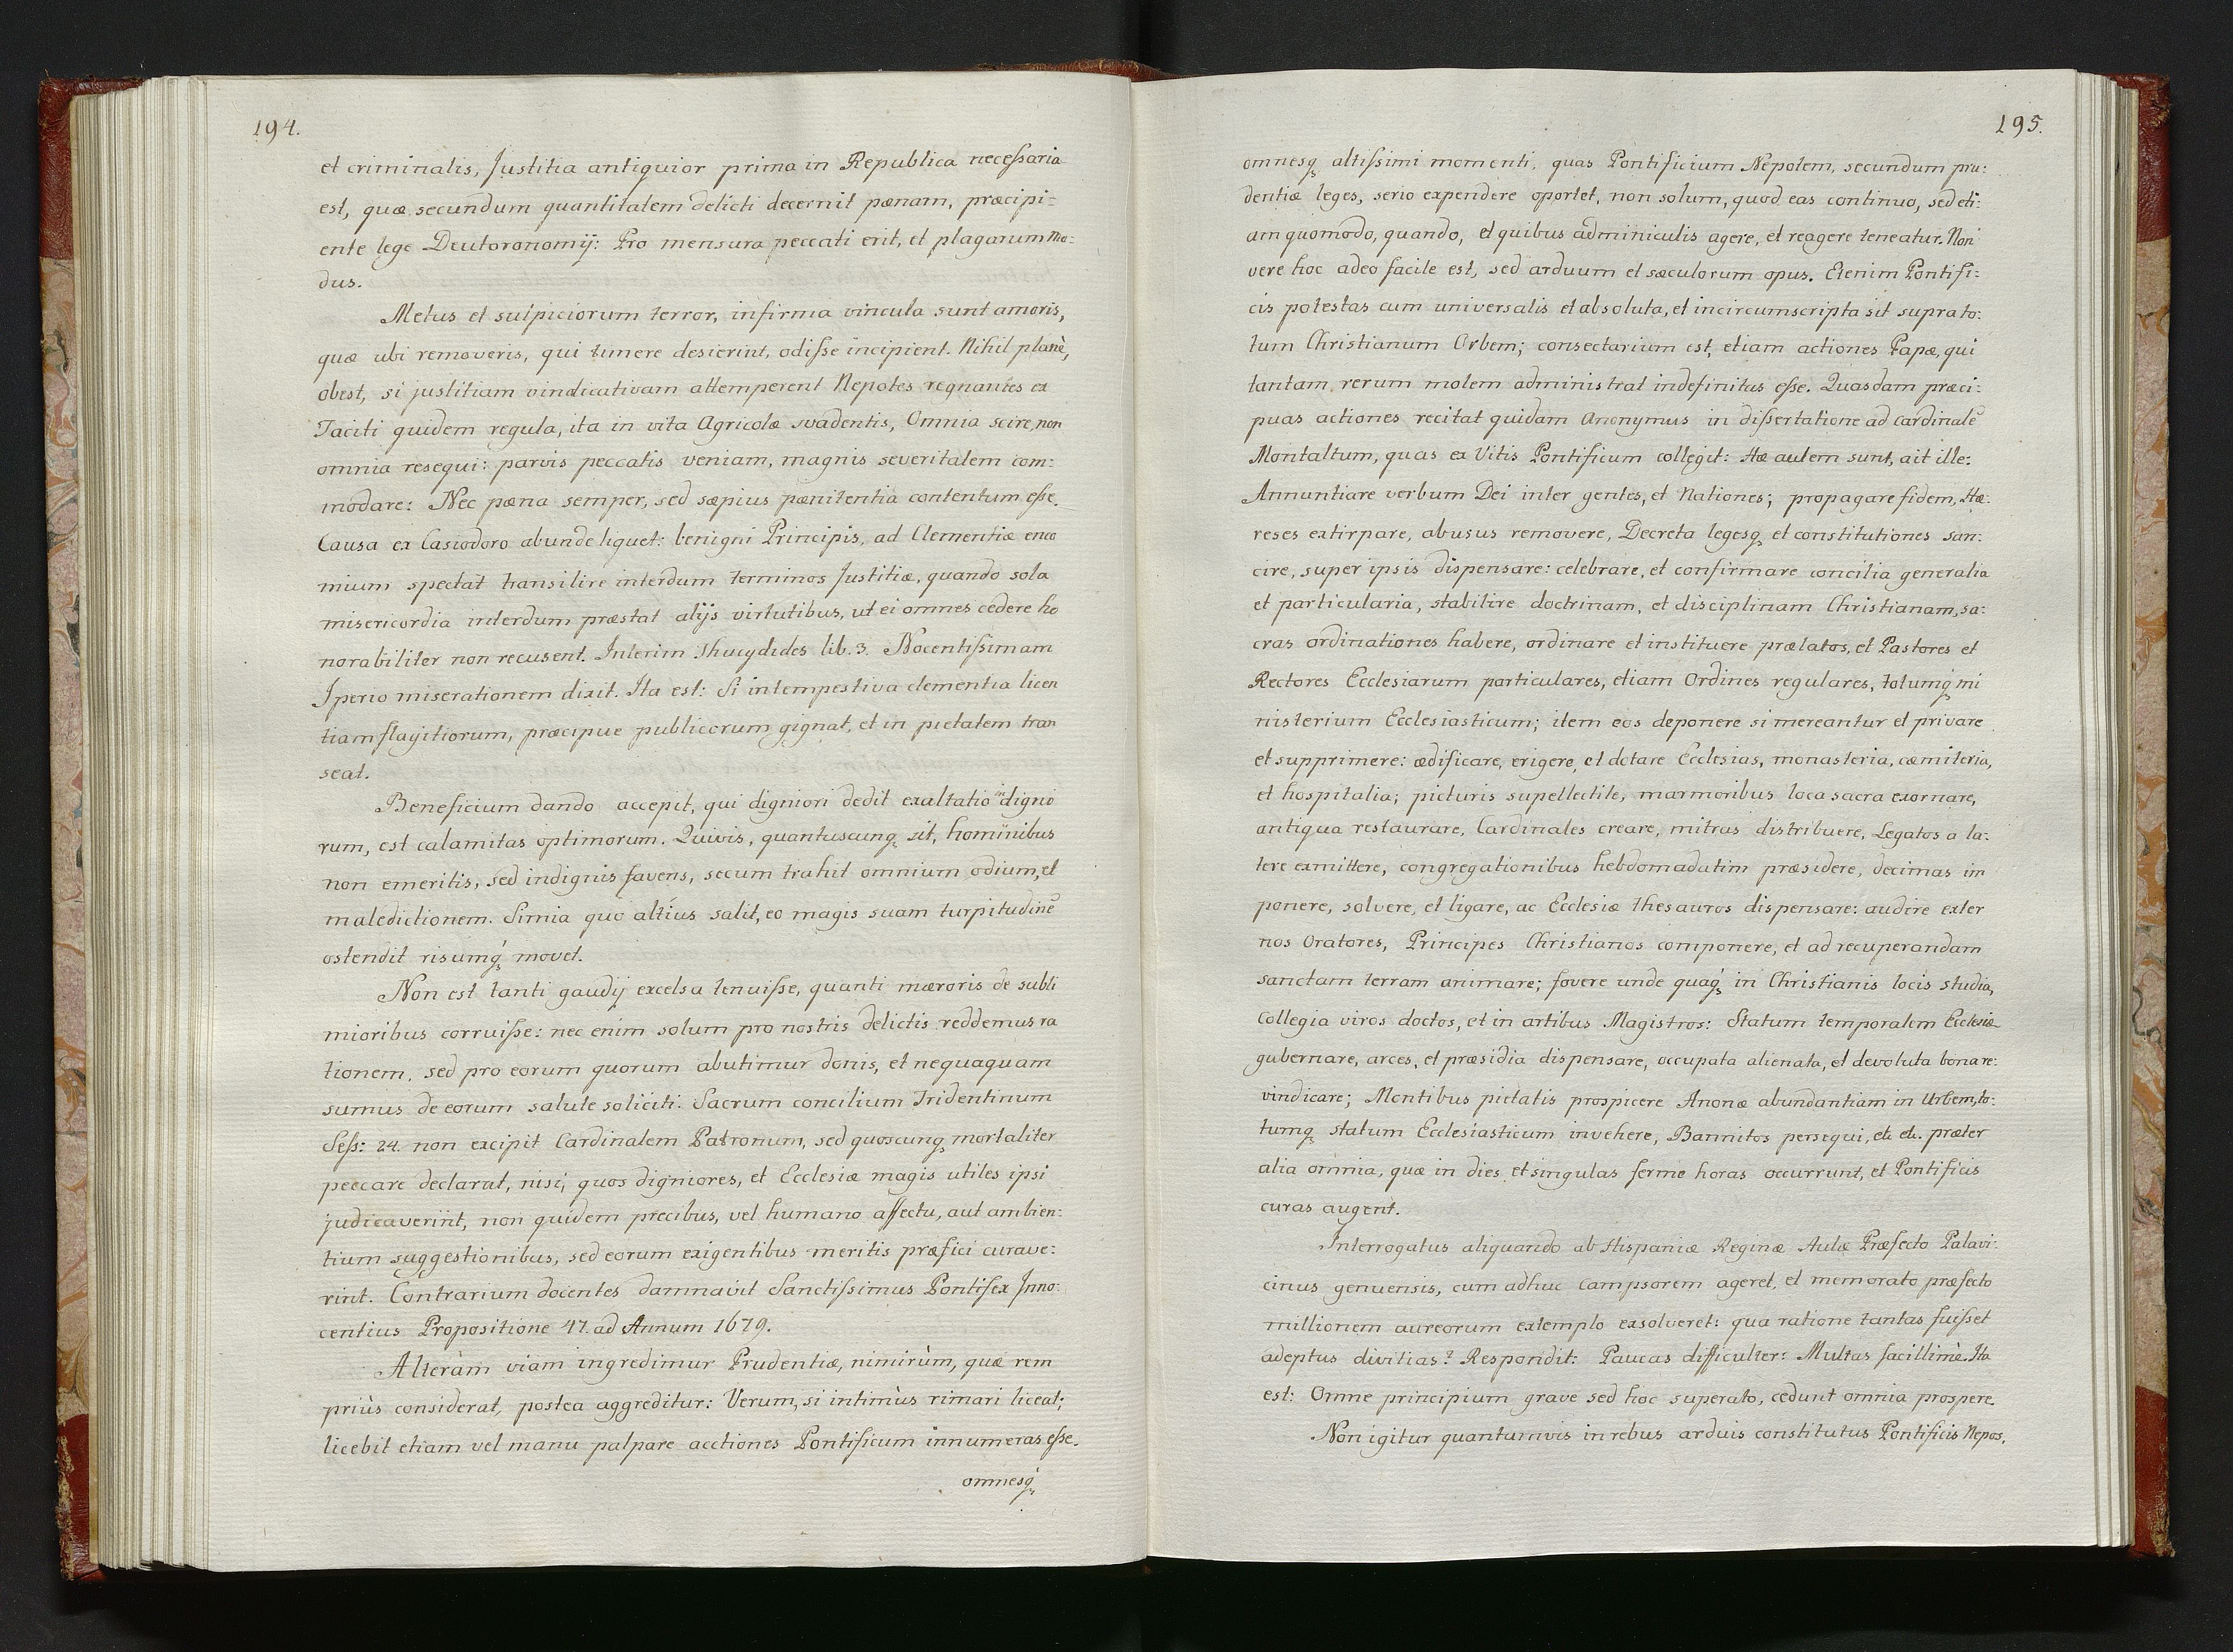 194.
et criminalis, Justitia antiquior prima in Republica necessaria
est, quæ secundum quantitatem delicti decernit pænam, præcipi=
ente lege Deutoronomij: Pro mensura peccati erit, et plagarum mo:
dus.
Metus et suspiciorum terror, infirma vincula sunt amoris,
quæ ubi removeris, qui timere desierint, odisse incipient. Nihil planè,
obest, si justitiam vindicativam attemperent Nepotes regnantes ex
Taciti quidem regula, ita in vita Agricolæ svadentis, Omnia scire, non
omnia resequi: parvis peccatis veniam, magnis severitatem com:
modare: Nec pæna semper, sed sæpius pænitentia contentum esse.
Causa ex Casiodoro abunde liquet: benigni Principis, ad Clementiæ enco
mium spectat transilire interdum terminos Justitiæ, quando sola
misericordia interdum præstat alijs virtutibus, ut ei omnes cedere ho
norabiliter non recusent. Interim Thucydides lib. 3. Nocentissimam
Iperio miserationem dixit. Ita est: Si intempestiva clementia licen
tiam flagitiorum, præcipue publicorum gignat, et in pietatem tran
seat.
Beneficium dando accepit, qui digniori dedit exaltatio in digno
rum, est calamitas optimorum. Quivis, quantuscunq sit, hominibus
non emeritis, sed indignis favens, secum trahit omnium odium, et
maledictionem. Simia quo altius salit, eo magis suam turpitudinē
ostendit risumq́ movet.
Non est tanti gaudij excelsa tenuisse, quanti mæroris de subli
mioribus corruisse: nec enim solum pro nostris delictis reddemus ra
tionem, sed pro eorum quorum abutimur donis, et nequaquam
sumus de eorum salute soliciti. Sacrum concilium Tridentinum
Sess: 24. non excipit Cardinalem Patronum, sed quoscunq mortaliter
peccare declarat, nisi, quos digniores, et Ecclesiæ magis utiles ipsi
judicaverint, non quidem precibus, vel humano affectu, aut ambien:
tium suggestionibus, sed eorum exigentibus meritis præfici curave:
rint. Contrarium docentes damnavit Sanctissimus Pontifex Inno:
centius Propositione 47. ad Annum 1679.
Alteràm viam ingredimur Prudentiæ, nimirùm, quæ rem
priùs considerat, postea aggreditur: Verum, si intimùs rimari liceat;
licebit etiam vel manu palpare acctiones Pontificum innumeras esse.
omnesq́
195.
omnesq altissimi momenti, quas Pontificium Nepotem, secundum pru:
dentiæ leges, serio expendere oportet, non solum, quod eas continuo, sed eti:
am quomodo, quando, et quibus adminiculis agere, et reagere teneatur. Non
vere hoc adeo facile est, sed arduum et sæculorum opus. Etenim Pontifi:
cis potestas cum universalis et absoluta, et incircumscripta sit supra to:
tum Christianum Orbem; consectarium est, etiam actiones Papæ, qui
tantam rerum molem administrat indefinitas esse. Quasdam præci:
puas actiones recitat quidam Anonymus in dissertatione ad Cardinalē
Montaltum, quas ex Vitis Pontificum collegit: Hæ autem sunt, ait ille:
Annuntiare verbum Dei inter gentes, et Nationes; propagare fidem, Hæ:
reses extirpare, abusus removere, Decreta legesq et constitutiones san:
cire, super ipsis dispensare: celebrare, et confirmare concilia generalia
et particularia, stabilire doctrinam, et disciplinam Christianam, sa:
cras ordinationes habere, ordinare et instituere prælatos, et Pastores et
Rectores Ecclesiarum particulares, etiam Ordines regulares, totumq́ mi
nisterium Ecclesiasticum; item eos deponere si mereantur et privare
et supprimere: ædificare, erigere, et dotare Ecclesias, monasteria, cæmiteria,
et hospitalia; picturis supellectile, marmoribus loca sacra exornare,
antiqua restaurare, Cardinales creare, mitras distribuere, Legatos a la:
tere exmittere, congregationibus hebdomadatim præsidere, decimas im
ponere, solvere, et ligare, ac Ecclesiæ thesauros dispensare: audire exter
nos Oratores, Principes Christianos componere, et ad recuperandam
sanctam terram animare; fovere unde quaq́ in Christianis locis studia,
Collegia viros doctos, et in artibus Magistros: Statum temporalem Ecclesiæ
gubernare, arces, et præsidia dispensare, occupata alienata, et devoluta bona re:
vindicare; Montibus pietatis prospicere Anonæ abundantiam in Urbem, to:
tumq statum Ecclesiasticum invehere, Bannitos persequi, etc etc. præter
alia omnia, quæ in dies et singulas ferme horas occurrunt, et Pontificis
curas augent.
Interrogatus aliquando ab Hispaniæ Reginæ Aulæ Præfecto Palavi:
cinus genuensis, cum adhuc Campsorem ageret, et memorato præfecto
millionem aureorum extemplo exsolveret: qua ratione tantas fuisset
adeptus divitias? Respondit: Paucas difficulter: Multas facillimè. Ita
est: Omne principium grave sed hoc superato, cedunt omnia prospere.
Non igitur quantumvis in rebus arduis constitutus Pontificis Nepos,